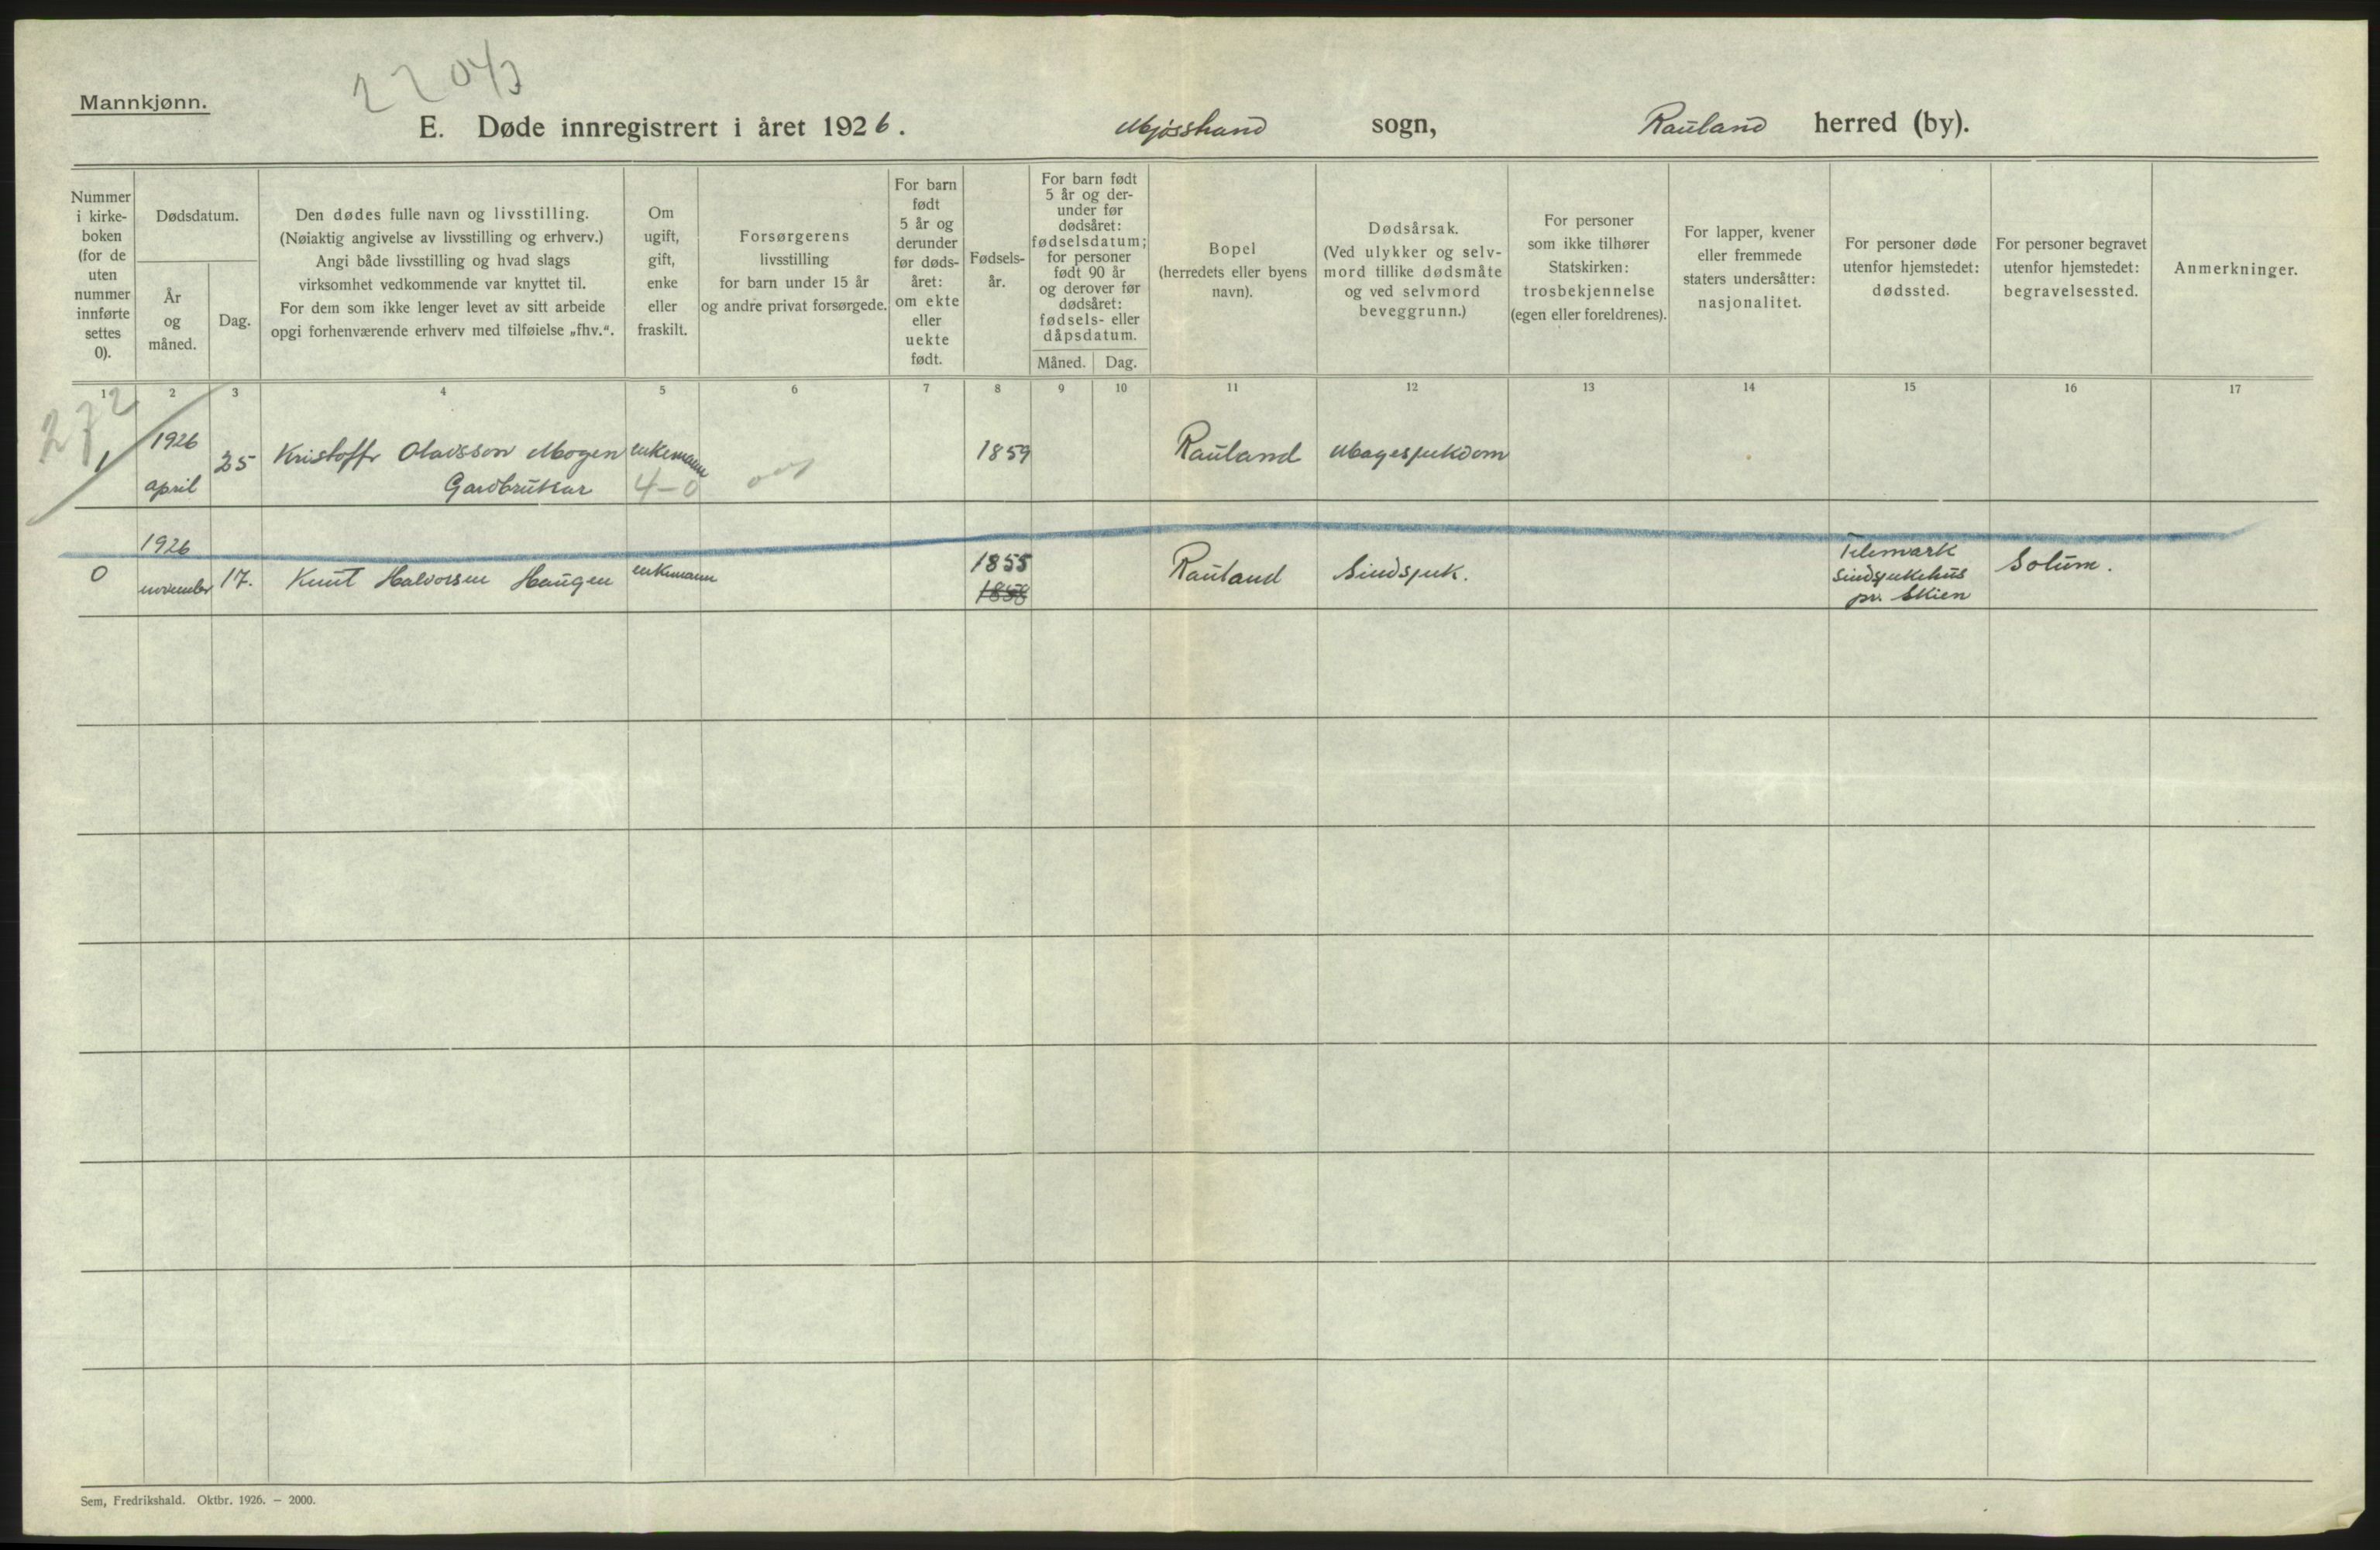 2204/3
Mannkjønn.
E. Døde innregistrert i året 1926. Mjösstrand sogn, Rauland herred (by).
Nummer
i kirke-
boken
(for de
uten
nummer
innførte
settes
0).
Dødsdatum.
År
og
måned.
Dag.
Den dødes fulle navn og livsstilling.
(Nøiaktig angivelse av livsstilling og erhverv.)
Angi både livsstilling og hvad slags
virksomhet vedkommende var knyttet til.
For dem som ikke lenger levet av sitt arbeide
opgi forhenværende erhverv med tilføielse „fhv.“.
Om
ugift,
gift,
enke
eller
fraskilt.
Forsørgerens
livsstilling
for barn under 15 år
og andre privat forsørgede.
For barn
født
5 år og
derunder
før døds-
året:
om ekte
eller
uekte
født.
Fødsels-
år.
For barn født
5 år og der-
under før
dødsåret:
fødselsdatum;
for personer
født 90 år
og derover før
dødsåret:
fødsels- eller
dåpsdatum.
Måned. Dag.
Bopel
(herredets eller byens
navn).
Dødsårsak.
(Ved ulykker og selv-
mord tillike dødsmåte
og ved selvmord
beveggrunn.)
For personer
som ikke tilhører
Statskirken:
trosbekjennelse
(egen eller foreldrenes).
For lapper, kvener
eller fremmede
staters undersåtter:
nasjonalitet.
For personer døde
utenfor hjemstedet:
dødssted.
For personer begravet
utenfor hjemstedet:
begravelsessted.
Anmerkninger.
1 2 3 4 5 6 7 8 9 10 11 12 13 14 15 16 17
272
1 1926 25 Kristoffr Olavsson Mogen enkemann 1859 Rauland Magesjukdom
april Gardbrukar 4-0
1926
0 november 17. Knut Halvorsen Haugen enkemann 1855 Rauland Sindsjuk. Telemark Solum.
1858 sindsjukehus
pr. Skien
Sem, Fredrikshald. Oktbr. 1926. — 2000.